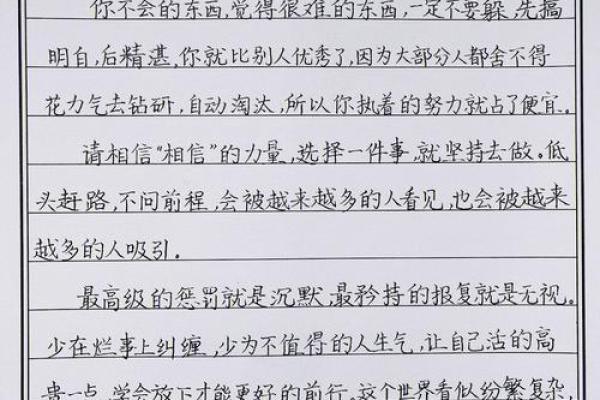 你不会的东西,觉得很难的东西,一定不要躲,先搞
明白,后精湛,你就比别人优秀了,因为大部分人都舍不得
花力气去钻研,自动淘汰,所以你执着的努力就占了便宜。
请相信“相信”的力量,选择一件事,就坚持去做。低
头赶路,不问前程,会被越来越多的人看见,也会被越来
越多的人吸引。
最高级的惩罚就是沉默,最矜持的报复就是无视。
少在烂事上纠缠,少为不值得的人生气,让自己活的高
贵一点,学会放下才能更好的前行。这个世界看似纷繁复杂,